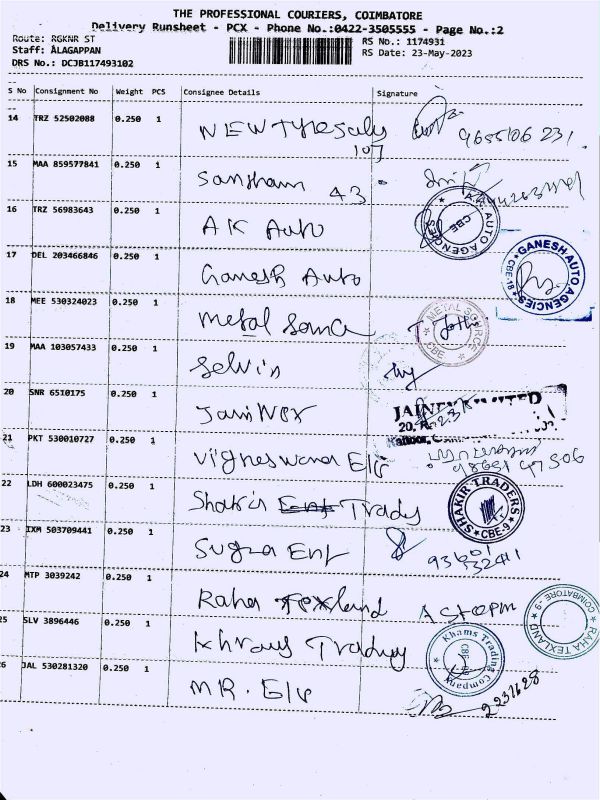 THE PROFESSIONAL COURIERS, COIMBATORE
Delivery Runsheet - PCX - Phone No.:0422-3505555 - Page No.:2
Route: RGKNR ST
Staff: ALAGAPPAN
DRS No.: DCJB117493102
RS No.: 1174931
RS Date: 23-May-2023
S No Consignment No Weight PCS Consignee Details Signature
14 TRZ 52502088 0.250 1 NEW Tyresaly 9655106 231
107
15 MAA 859577841 0.250 1 Santham 43
16 TRZ 56983643 0.250 1 AK Auto AUTO AGENCIES CBE
17 DEL 203466846 0.250 1 Ganesh Auto GANESH AUTO AGENCIES CBE-18
18 MEE 530324023 0.250 1 Metal Source METAL SOURCE CBE
19 MAA 103057433 0.250 1 Selvin
20 SNR 6510175 0.250 1 Jainwex LIMITED
21 PKT 530010727 0.250 1 Vigneswara Ele
22 LDH 600023475 0.250 1 Shakir Ent Trady SHAKIR TRADERS CBE-9
23 IXM 503709441 0.250 1 Sugra Ent
24 MTP 3039242 0.250 1 Raha Texland RAHA TEXLAND COIMBATORE-9
25 SLV 3896446 0.250 1 Khams Trading Company CBE
26 JAL 530281320 0.250 1 MR. Ele 2231628